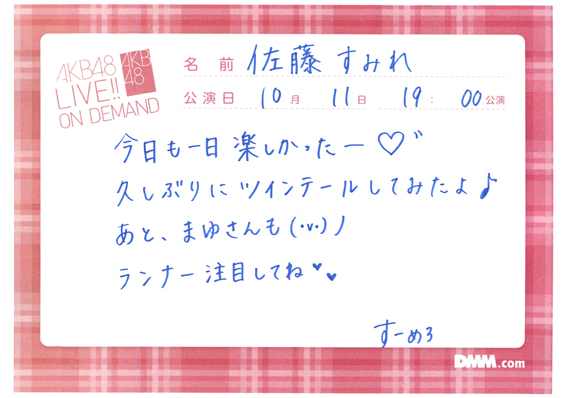 AKB48
LIVE!!
ON DEMAND
AKB
48
名前 佐藤すみれ
公演日 10月 11日 19:00公演
今日も一日楽しかったー♡゛
久しぶりにツインテールしてみたよ♪
あと、まゆさんも(・v・)ノ
ランナー注目してね♥♥
すーめろ
DMM.com